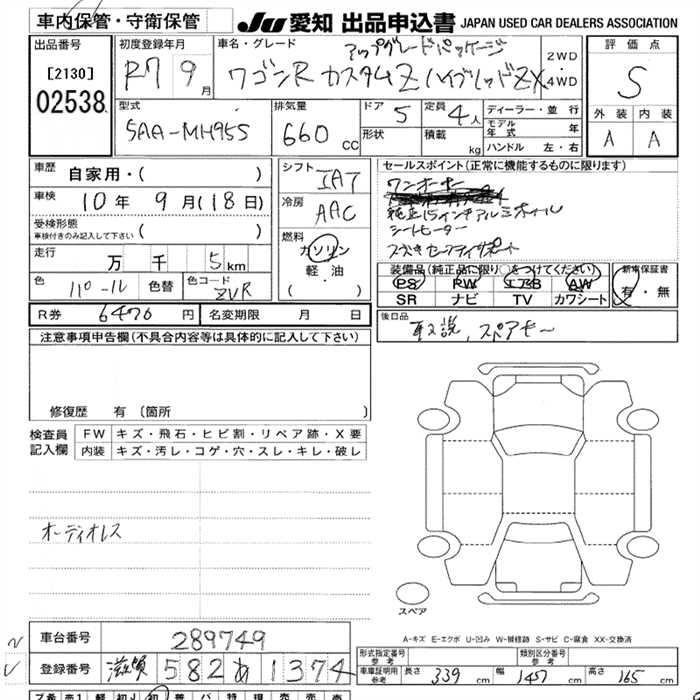 車内保管・守衛保管
JU 愛知 出品申込書 JAPAN USED CAR DEALERS ASSOCIATION
出品番号
[2130]
02538
初度登録年月
R7 9月
車名・グレード
アップグレードパッケージ
ワゴンR カスタムZ ハイブリッドZX
2WD
4WD
評価点
S
外装 内装
A A
型式
5AA-MH95S
排気量
660cc
ドア 5
形状
定員 4人
積載 kg
ディーラー・並行
モデル年式 年
ハンドル 左・右
車歴
自家用・( )
車検
10年 9月(18日)
受検形態
車検付きのみ記入して下さい ( )
走行
万 千 5km
色 パール 色替
色コード ZVR
シフト IAT
冷房 AAC
燃料
ガソリン
軽油
( ・ )
セールスポイント(正常に機能するものに限ります)
ワンオーナー
純正15インチアルミホイール
シートヒーター
スズキセーフティサポート
装備品(純正品に限り○をつけてください)
PS PW エアB AW
SR ナビ TV カワシート
新車保証書
有・無
R券 6470円 名変期限 月 日
後日品
取説、スペアキー
注意事項申告欄(不具合内容等は具体的に記入して下さい)
修復歴 有(箇所 )
検査員記入欄
FW キズ・飛石・ヒビ割・リペア跡・X要
内装 キズ・汚レ・コゲ・穴・スレ・キレ・破レ
オーディオレス
スペア
A-キズ E-エクボ U-凹み W-補修跡 S-サビ C-腐食 XX-交換済
車台番号 289749
登録番号 滋賀 582 あ 1374
形式指定番号 参考
類別区分番号 参考
車庫証明用 参考 長さ 339cm 幅 147cm 高さ 165cm